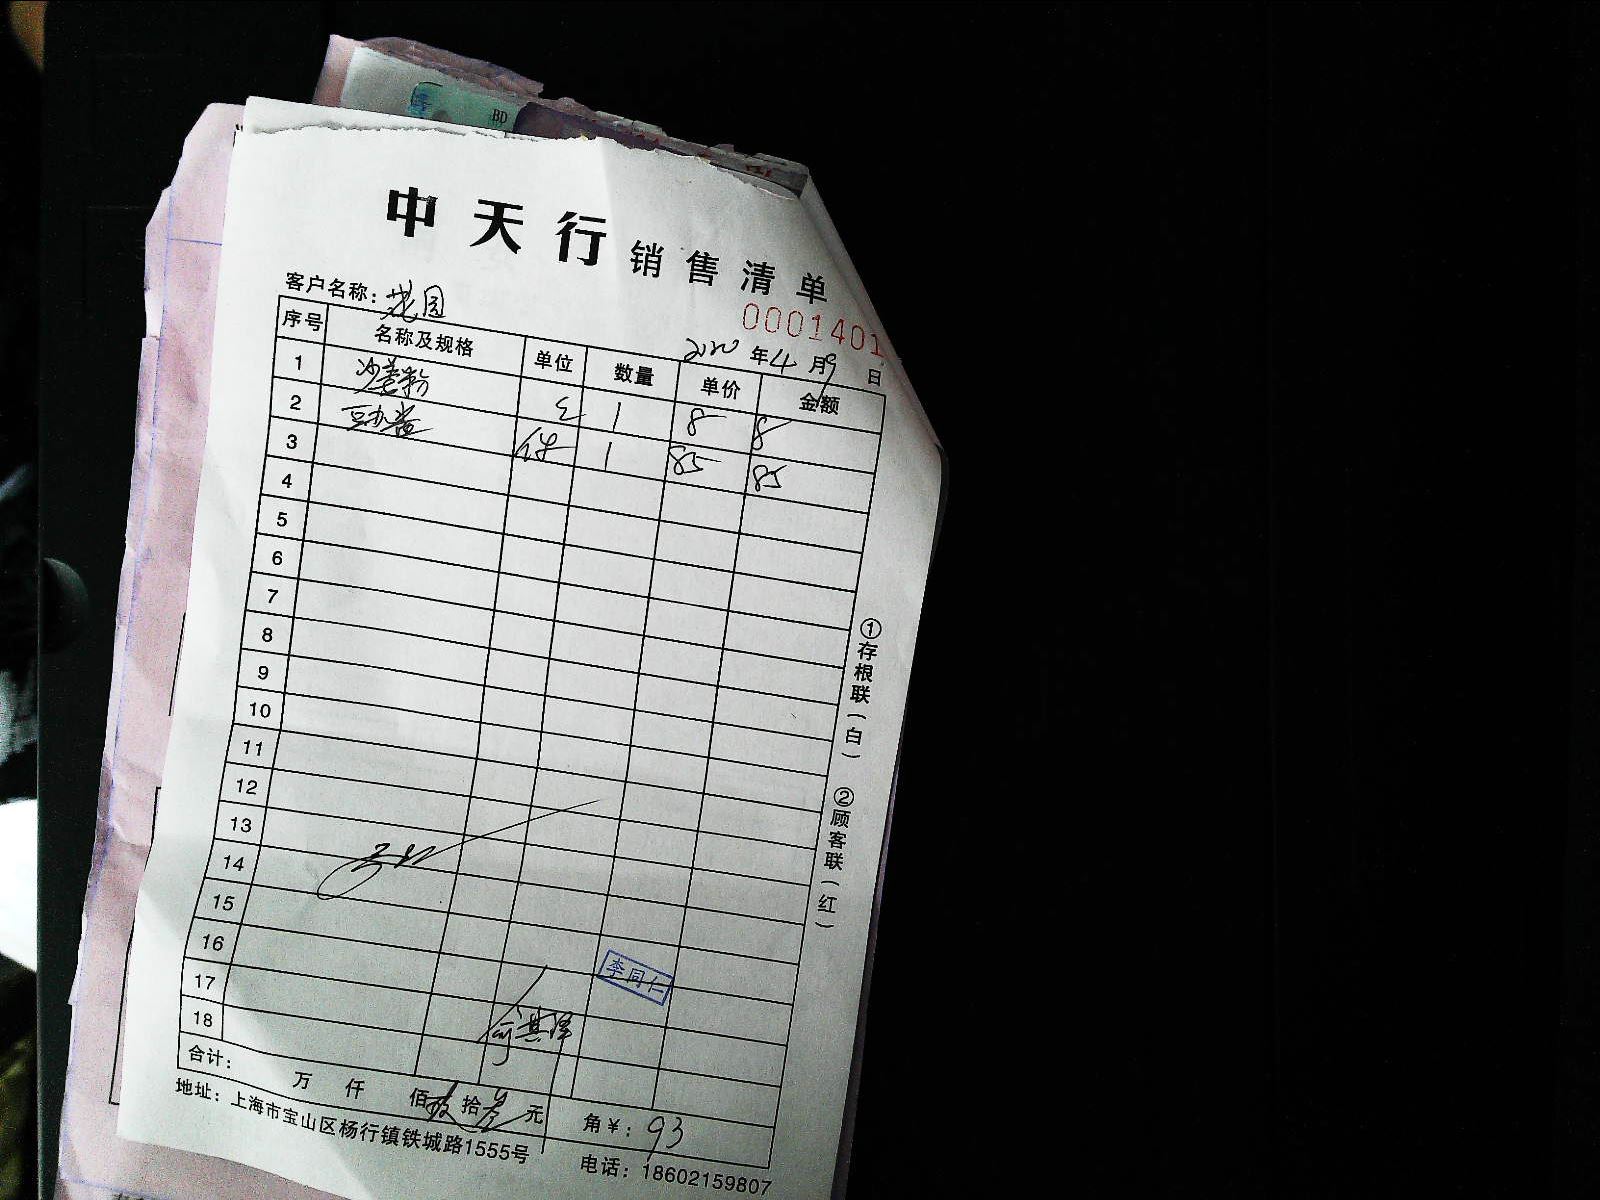 BD
中天行 销售清单
客户名称：花园
0001401
2020 年 4 月 9 日
序号 名称及规格 单位 数量 单价 金额
1 沙姜粉 包 1 8 8
2 豆瓣酱 件 1 85 85
3
4
5
6
7
8
9
10
11
12
13
14
15
16
李同仁
17
18
合计： 万 仟 佰 玖 拾 叁 元 角 ¥：93
地址：上海市宝山区杨行镇铁城路1555号 电话：18602159807
①存根联（白） ②顾客联（红）